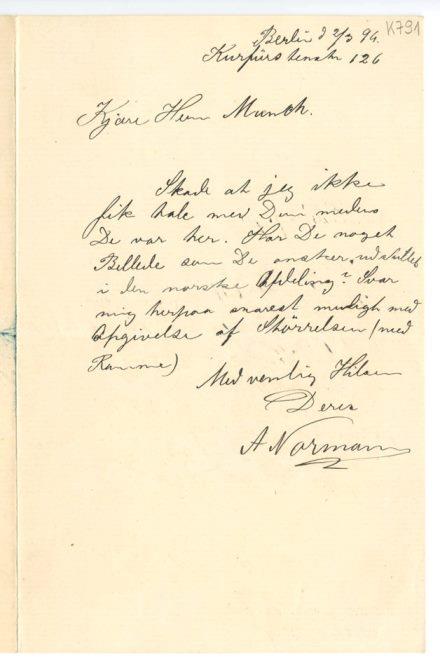 K791
Berlin d 2/3 96.
Kurfürstenstr 126
Kjære Herr Munch.
Skade at jeg ikke
fik tale med Dem medens
De var her. Har De noget
Billede som De ønsker udstillet
i den norske Afdeling? Svar
mig herpaa snarest muligh med
Opgivelse af Størrelsen (med
Ramme)
Med venlig Hilsen
Deres
A Normann